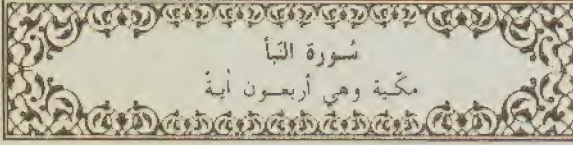 سُورة النّبأ
مكّية وهي أربعون أيةً